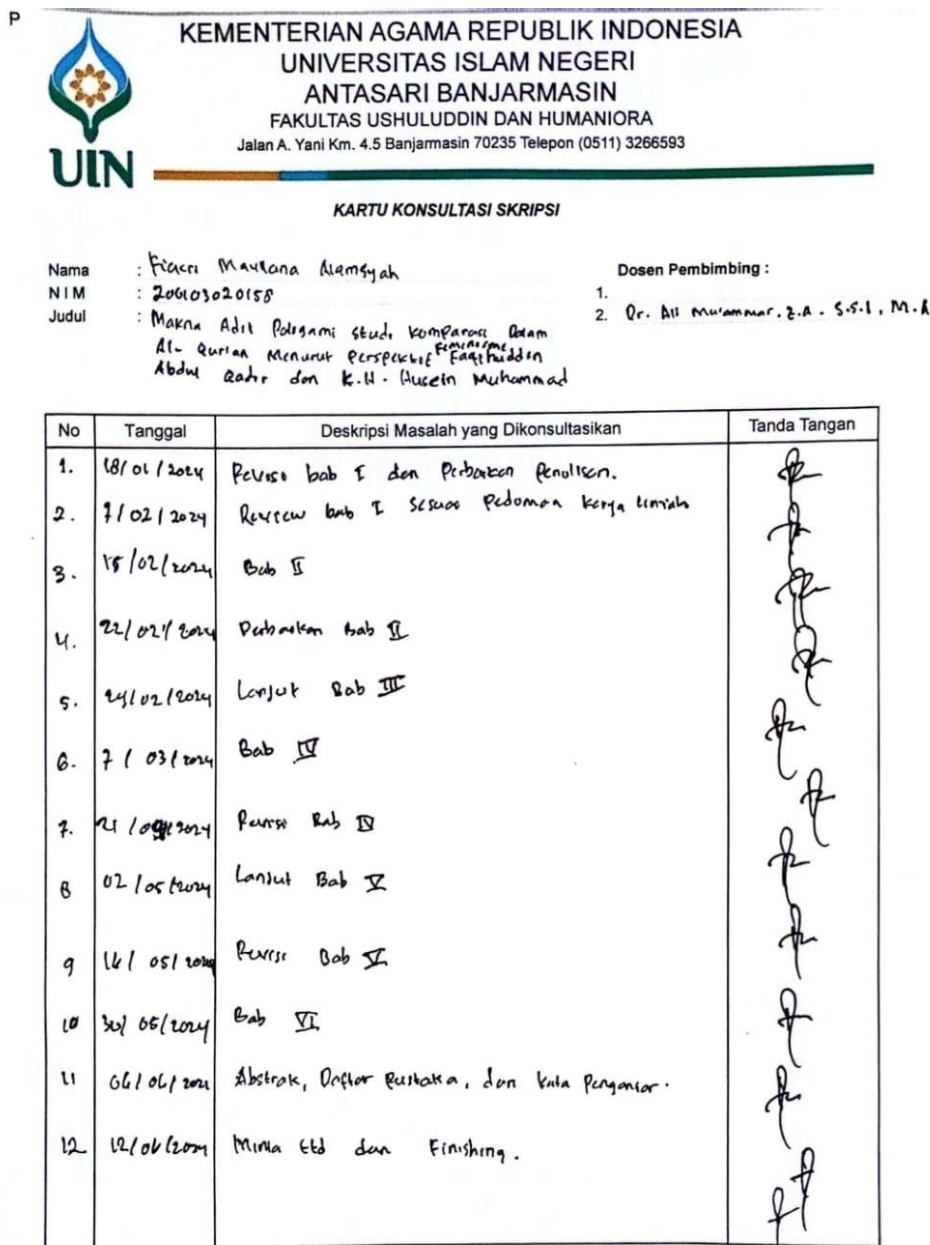 P
KEMENTERIAN AGAMA REPUBLIK INDONESIA
UNIVERSITAS ISLAM NEGERI
ANTASARI BANJARMASIN
FAKULTAS USHULUDDIN DAN HUMANIORA
Jalan A. Yani Km. 4.5 Banjarmasin 70235 Telepon (0511) 3266593
UIN
KARTU KONSULTASI SKRIPSI
Nama : Maulana Alamsyah
NIM : 200103020158
Judul : Makna Adil Poligami Studi Komparasi Dalam
Al-Qur'an Menurut Perspektif Feminisme Faqihuddin
Abdul Qadir dan K.H. Husein Muhammad
Dosen Pembimbing :
1.
2. Dr. Ali Muammar. Z.A. S.S.I, M.A
No Tanggal Deskripsi Masalah yang Dikonsultasikan Tanda Tangan
1. 18/01/2024 Revisi bab I dan Perbaikan Penulisan.
2. 7/02/2024 Review bab I Sesuai Pedoman Karya Ilmiah
3. 15/02/2024 Bab II
4. 22/02/2024 Perbaikan Bab II
5. 29/02/2024 Lanjut Bab III
6. 7/03/2024 Bab IV
7. 21/ /2024 Revisi Bab IV
8 02/05/2024 Lanjut Bab V
9 16/05/2024 Revisi Bab V
10 30/05/2024 Bab VI
11 06/06/2024 Abstrak, Daftar Pustaka, dan Kata Pengantar.
12 12/06/2024 Minta ttd dan Finishing.